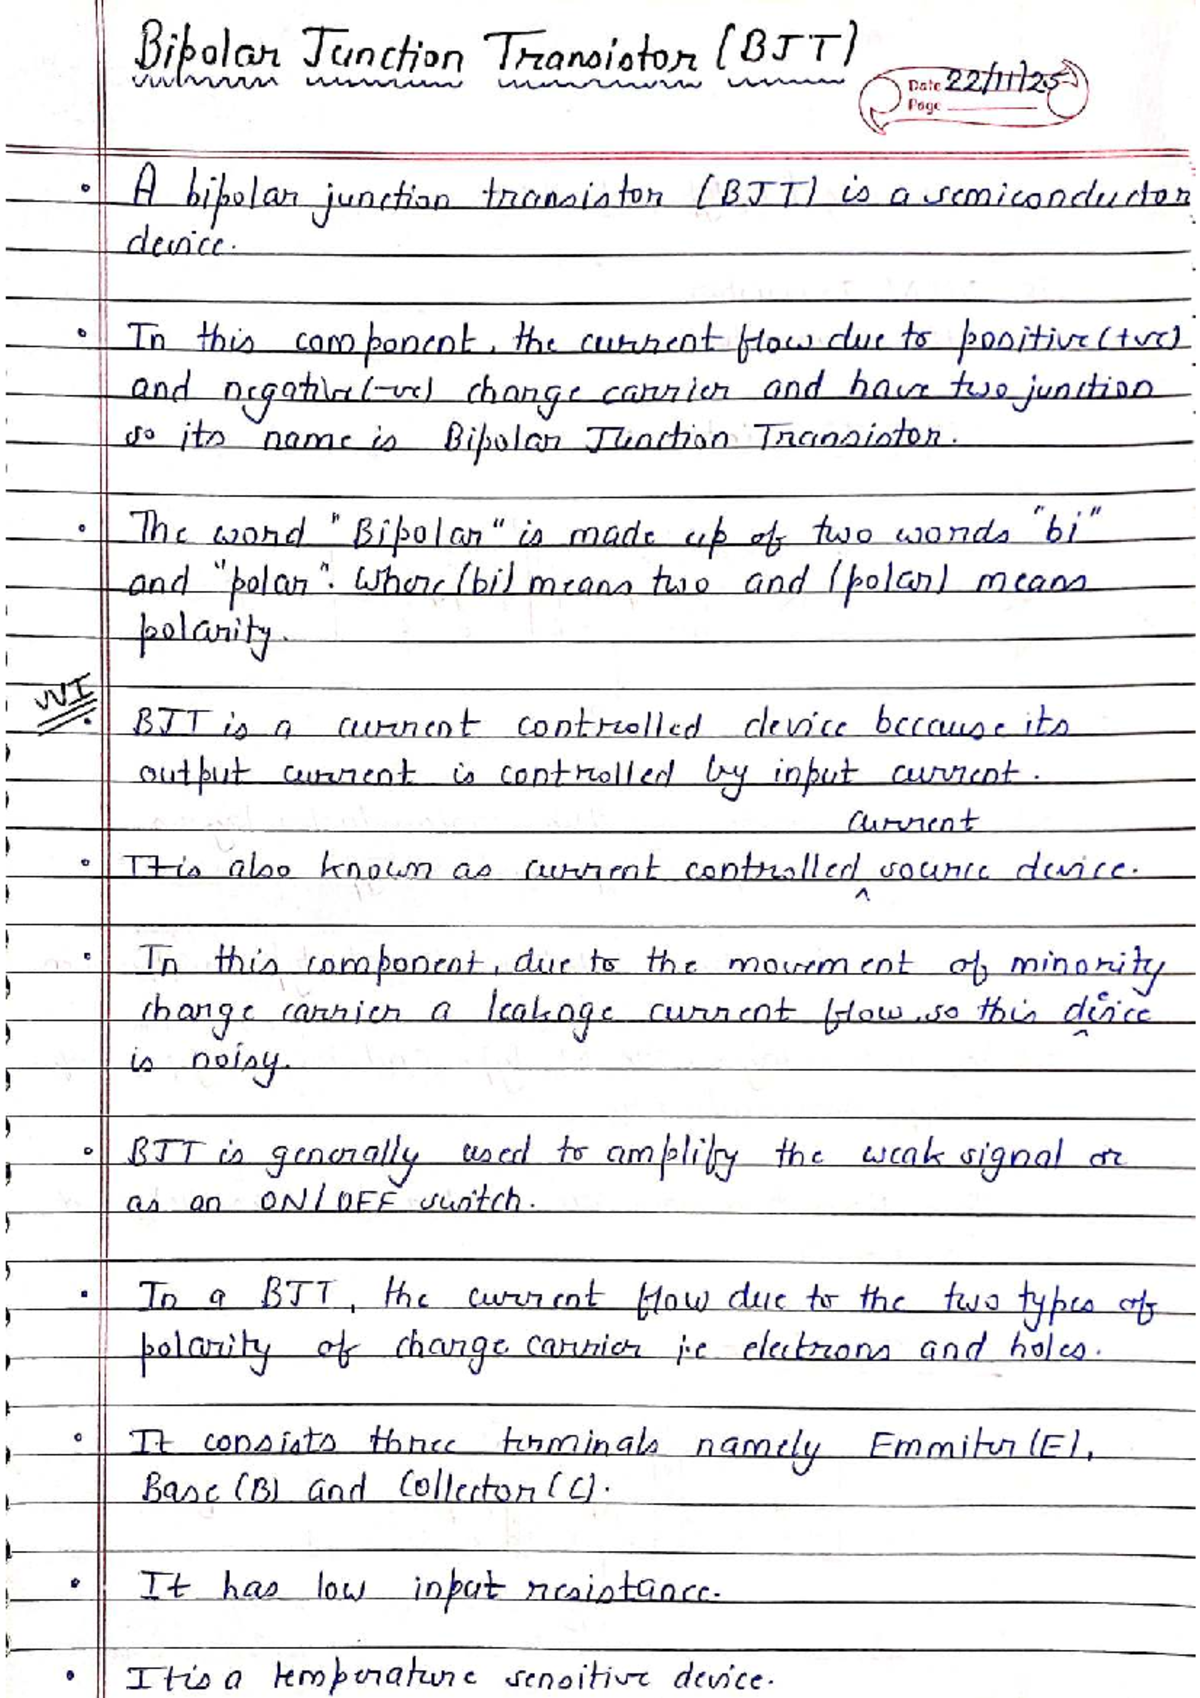 Bipolar Junction Transistor (BJT)
Date 22/11/25
Page
• A bipolar junction transistor (BJT) is a semiconductor
device.
• In this component, the current flow due to positive (+ve)
and negative (-ve) charge carrier and have two junction
so its name is Bipolar Junction Transistor.
• The word "Bipolar" is made up of two words "bi"
and "polar". Where (bi) means two and (polar) means
polarity.
VVI
• BJT is a current controlled device because its
output current is controlled by input current.
current
• It is also known as current controlled ^ source device.
• In this component, due to the movement of minority
charge carrier a leakage current flow, so this device
is noisy.
• BJT is generally used to amplify the weak signal or
as an ON/OFF switch.
• In a BJT, the current flow due to the two types of
polarity of charge carrier i.e electrons and holes.
• It consists three terminals namely Emmiter (E),
Base (B) and Collector (C).
• It has low input resistance.
• It is a temperature sensitive device.